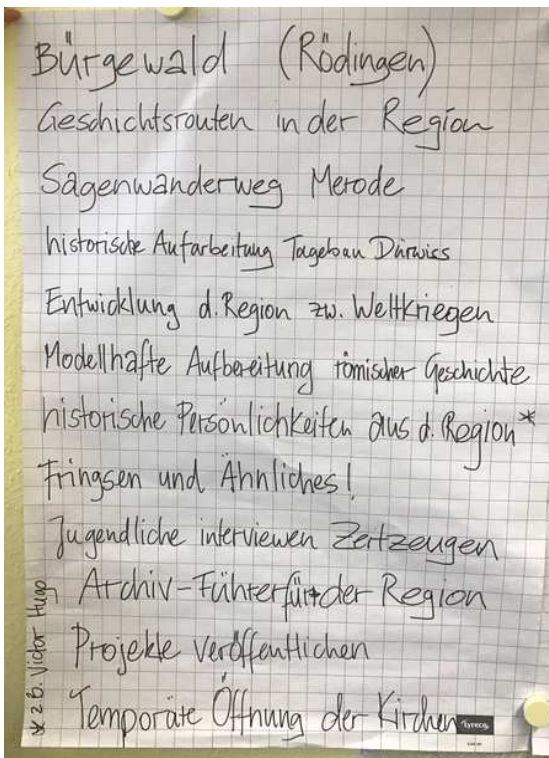 Bürgewald (Rödingen)
Geschichtsrouten in der Region
Sagenwanderweg Merode
historische Aufarbeitung Tagebau Dürwiss
Entwicklung d. Region zw. Weltkriegen
Modellhafte Aufbereitung römischer Geschichte
historische Persönlichkeiten aus d. Region*
Fringsen und Ähnliches!
Jugendliche interviewen Zeitzeugen
Archiv-Führer für der Region
Projekte veröffentlichen
Temporäte Öffnung der Kirchen
* z B. Victor Hugo
lyreco